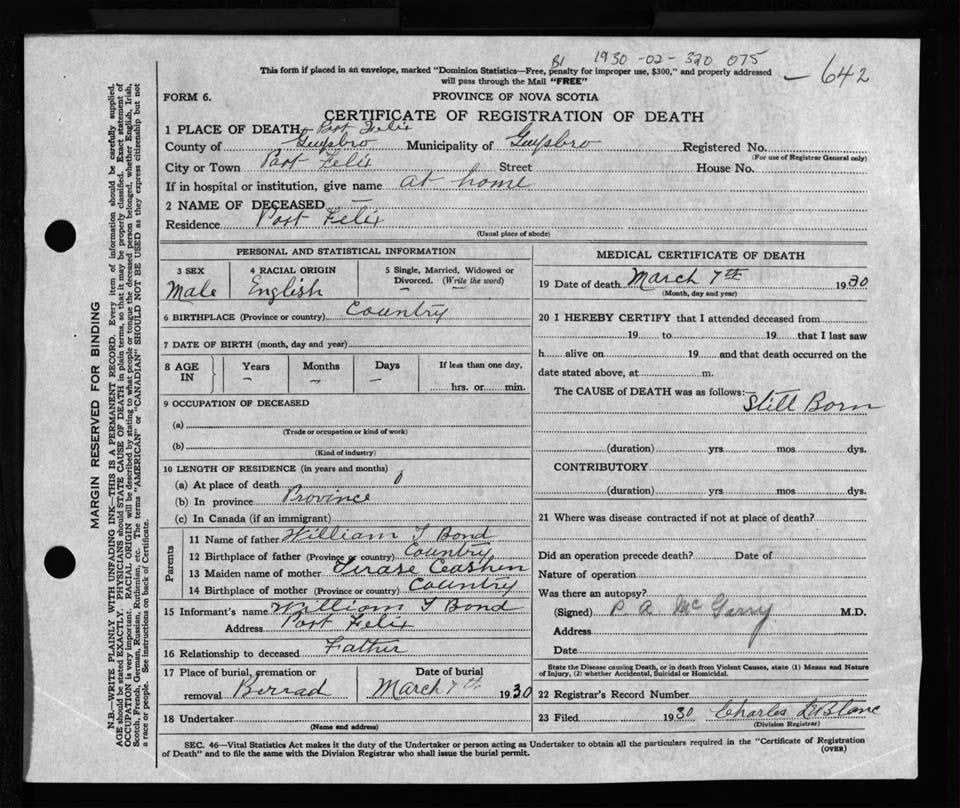 B1 1930-02-320 075
This form if placed in an envelope, marked "Dominion Statistics—Free, penalty for improper use, $300," and properly addressed
will pass through the Mail "FREE"
— 642
FORM 6.
PROVINCE OF NOVA SCOTIA
CERTIFICATE OF REGISTRATION OF DEATH
1 PLACE OF DEATH Port Felix
County of Guysbro Municipality of Guysbro Registered No.
(For use of Registrar General only)
City or Town Port Felix Street House No.
If in hospital or institution, give name at home
2 NAME OF DECEASED —
Residence Port Felix
(Usual place of abode)
PERSONAL AND STATISTICAL INFORMATION
3 SEX 4 RACIAL ORIGIN 5 Single, Married, Widowed or
Divorced. (Write the word)
Male English — —
6 BIRTHPLACE (Province or country) Country
7 DATE OF BIRTH (month, day and year)
8 AGE IN Years Months Days If less than one day,
— — — hrs. or min.
9 OCCUPATION OF DECEASED
(a)
(Trade or occupation or kind of work)
(b)
(Kind of industry)
10 LENGTH OF RESIDENCE (in years and months)
(a) At place of death 0
(b) In province Province
(c) In Canada (if an immigrant)
Parents
11 Name of father William T Bond
12 Birthplace of father (Province or country) Country
13 Maiden name of mother
14 Birthplace of mother (Province or country) Country
15 Informant's name William T Bond
Address Port Felix
16 Relationship to deceased Father
17 Place of burial, cremation or Date of burial
removal March 7th 1930
18 Undertaker
(Name and address)
MEDICAL CERTIFICATE OF DEATH
19 Date of death March 7th 1930
(Month, day and year)
20 I HEREBY CERTIFY that I attended deceased from
19 to 19 that I last saw
h alive on 19 and that death occurred on the
date stated above, at m.
The CAUSE of DEATH was as follows:
Still Born
(duration) yrs mos dys.
CONTRIBUTORY
(duration) yrs mos dys.
21 Where was disease contracted if not at place of death?
Did an operation precede death? Date of
Nature of operation
Was there an autopsy?
(Signed) P A McGarry M.D.
Address
Date
State the Disease causing Death, or in death from Violent Causes, state (1) Means and Nature
of Injury, (2) whether Accidental, Suicidal or Homicidal.
22 Registrar's Record Number
23 Filed 1930 Charles LeBlanc
(Division Registrar)
SEC. 46—Vital Statistics Act makes it the duty of the Undertaker or person acting as Undertaker to obtain all the particulars required in the "Certificate of Registration
of Death" and to file the same with the Division Registrar who shall issue the burial permit. (OVER)
MARGIN RESERVED FOR BINDING
N.B.—WRITE PLAINLY WITH UNFADING INK—THIS IS A PERMANENT RECORD. Every item of information should be carefully supplied.
AGE should be stated EXACTLY. PHYSICIANS should STATE CAUSE OF DEATH in plain terms, so that it may be properly classified. Exact statement of
OCCUPATION is very important. RACIAL ORIGIN will be described by stating to what people or tongue the deceased person belonged, whether English, Irish,
Scotch, French, German, Russian, Ruthenian, etc. The terms "AMERICAN" or "CANADIAN" SHOULD NOT BE USED as they express citizenship but not
a race or people. See instructions on back of Certificate.